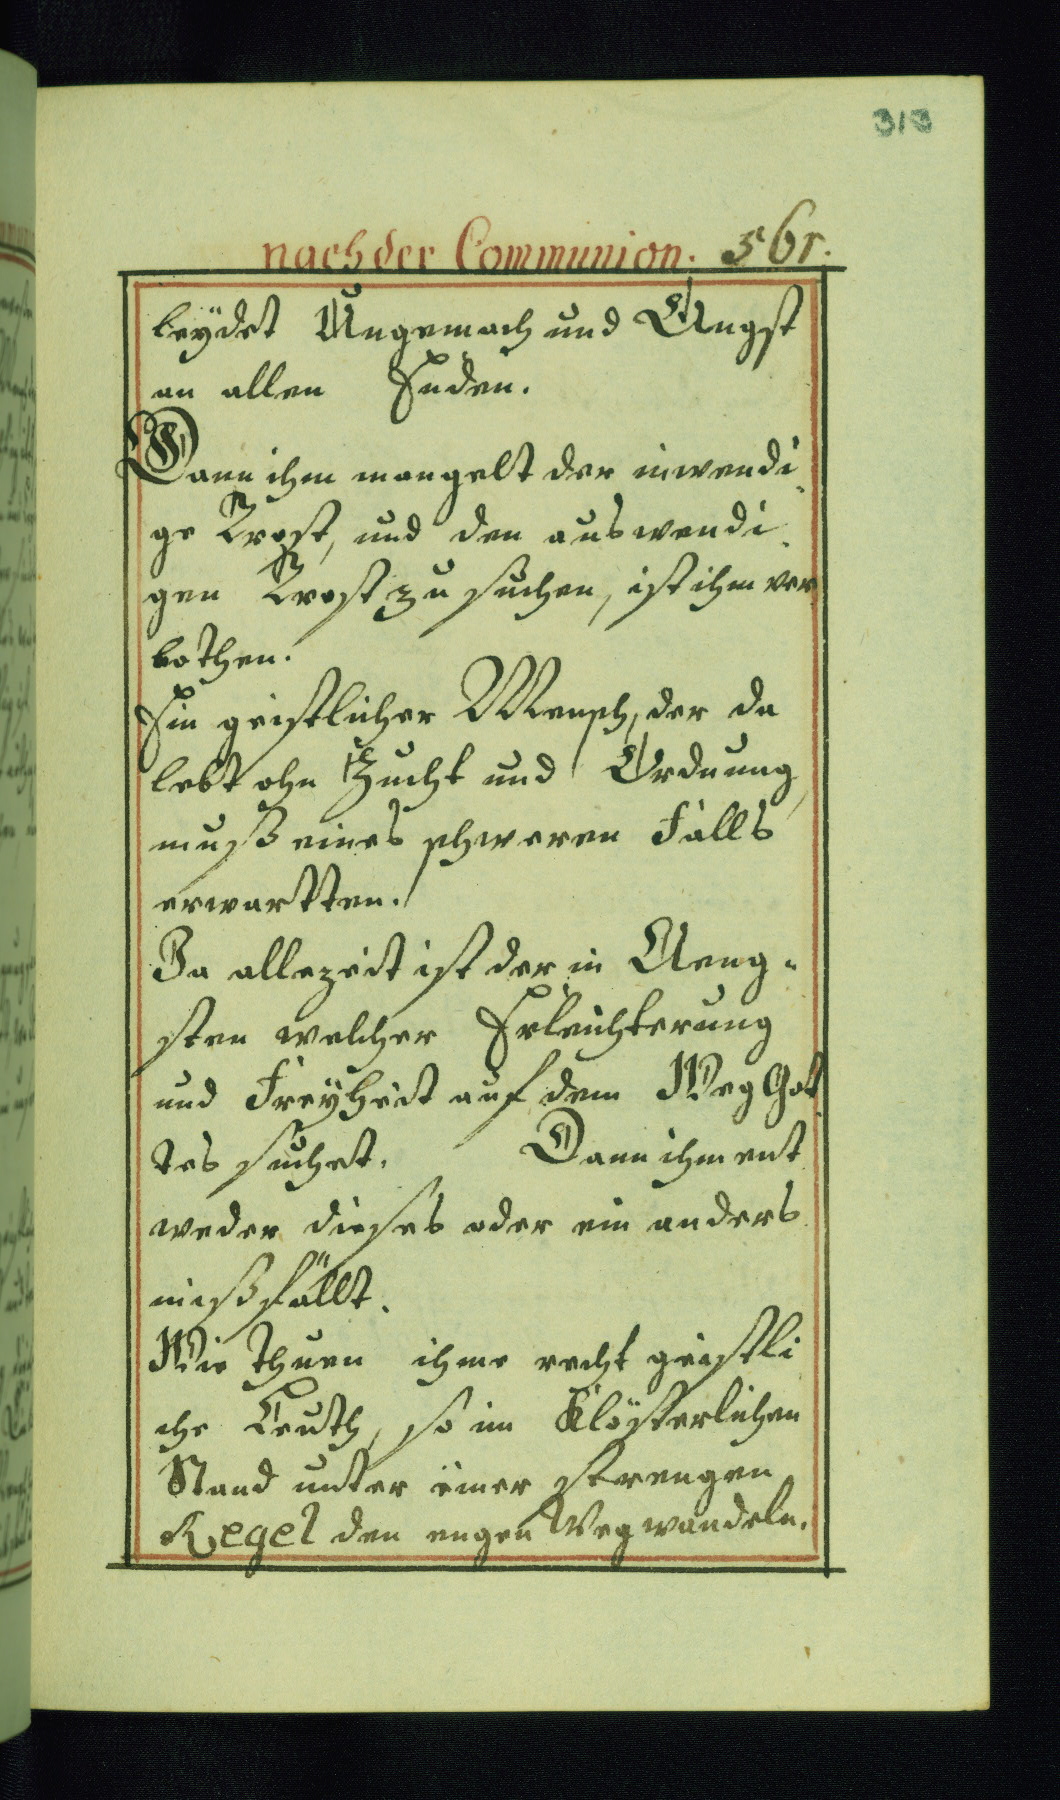 313
nach der Communion. 561.
leÿdet Ungemach und Angst
an allen Enden.
Dann ihm mangelt der inwendi¬
ge Trost, und den auswendi¬
gen Trost zu suchen, ist ihm ver
bothen.
Ein geistlicher Mensch, der da
lebt ohn Zucht und Ordnung,
muß eines schweren Falls
erwartten.
Ja allezeit ist der in Aeng¬
sten welcher Erleichterung
und Freÿheit auf dem Weg Got
tes suchet. Dann ihm ent
weder dieses oder ein anders
mißfällt.
Wie thuen ihme recht geistli
che Leuth, so im Klösterlichen
Stand unter einer strengen
Regel den engen Weg wandeln.